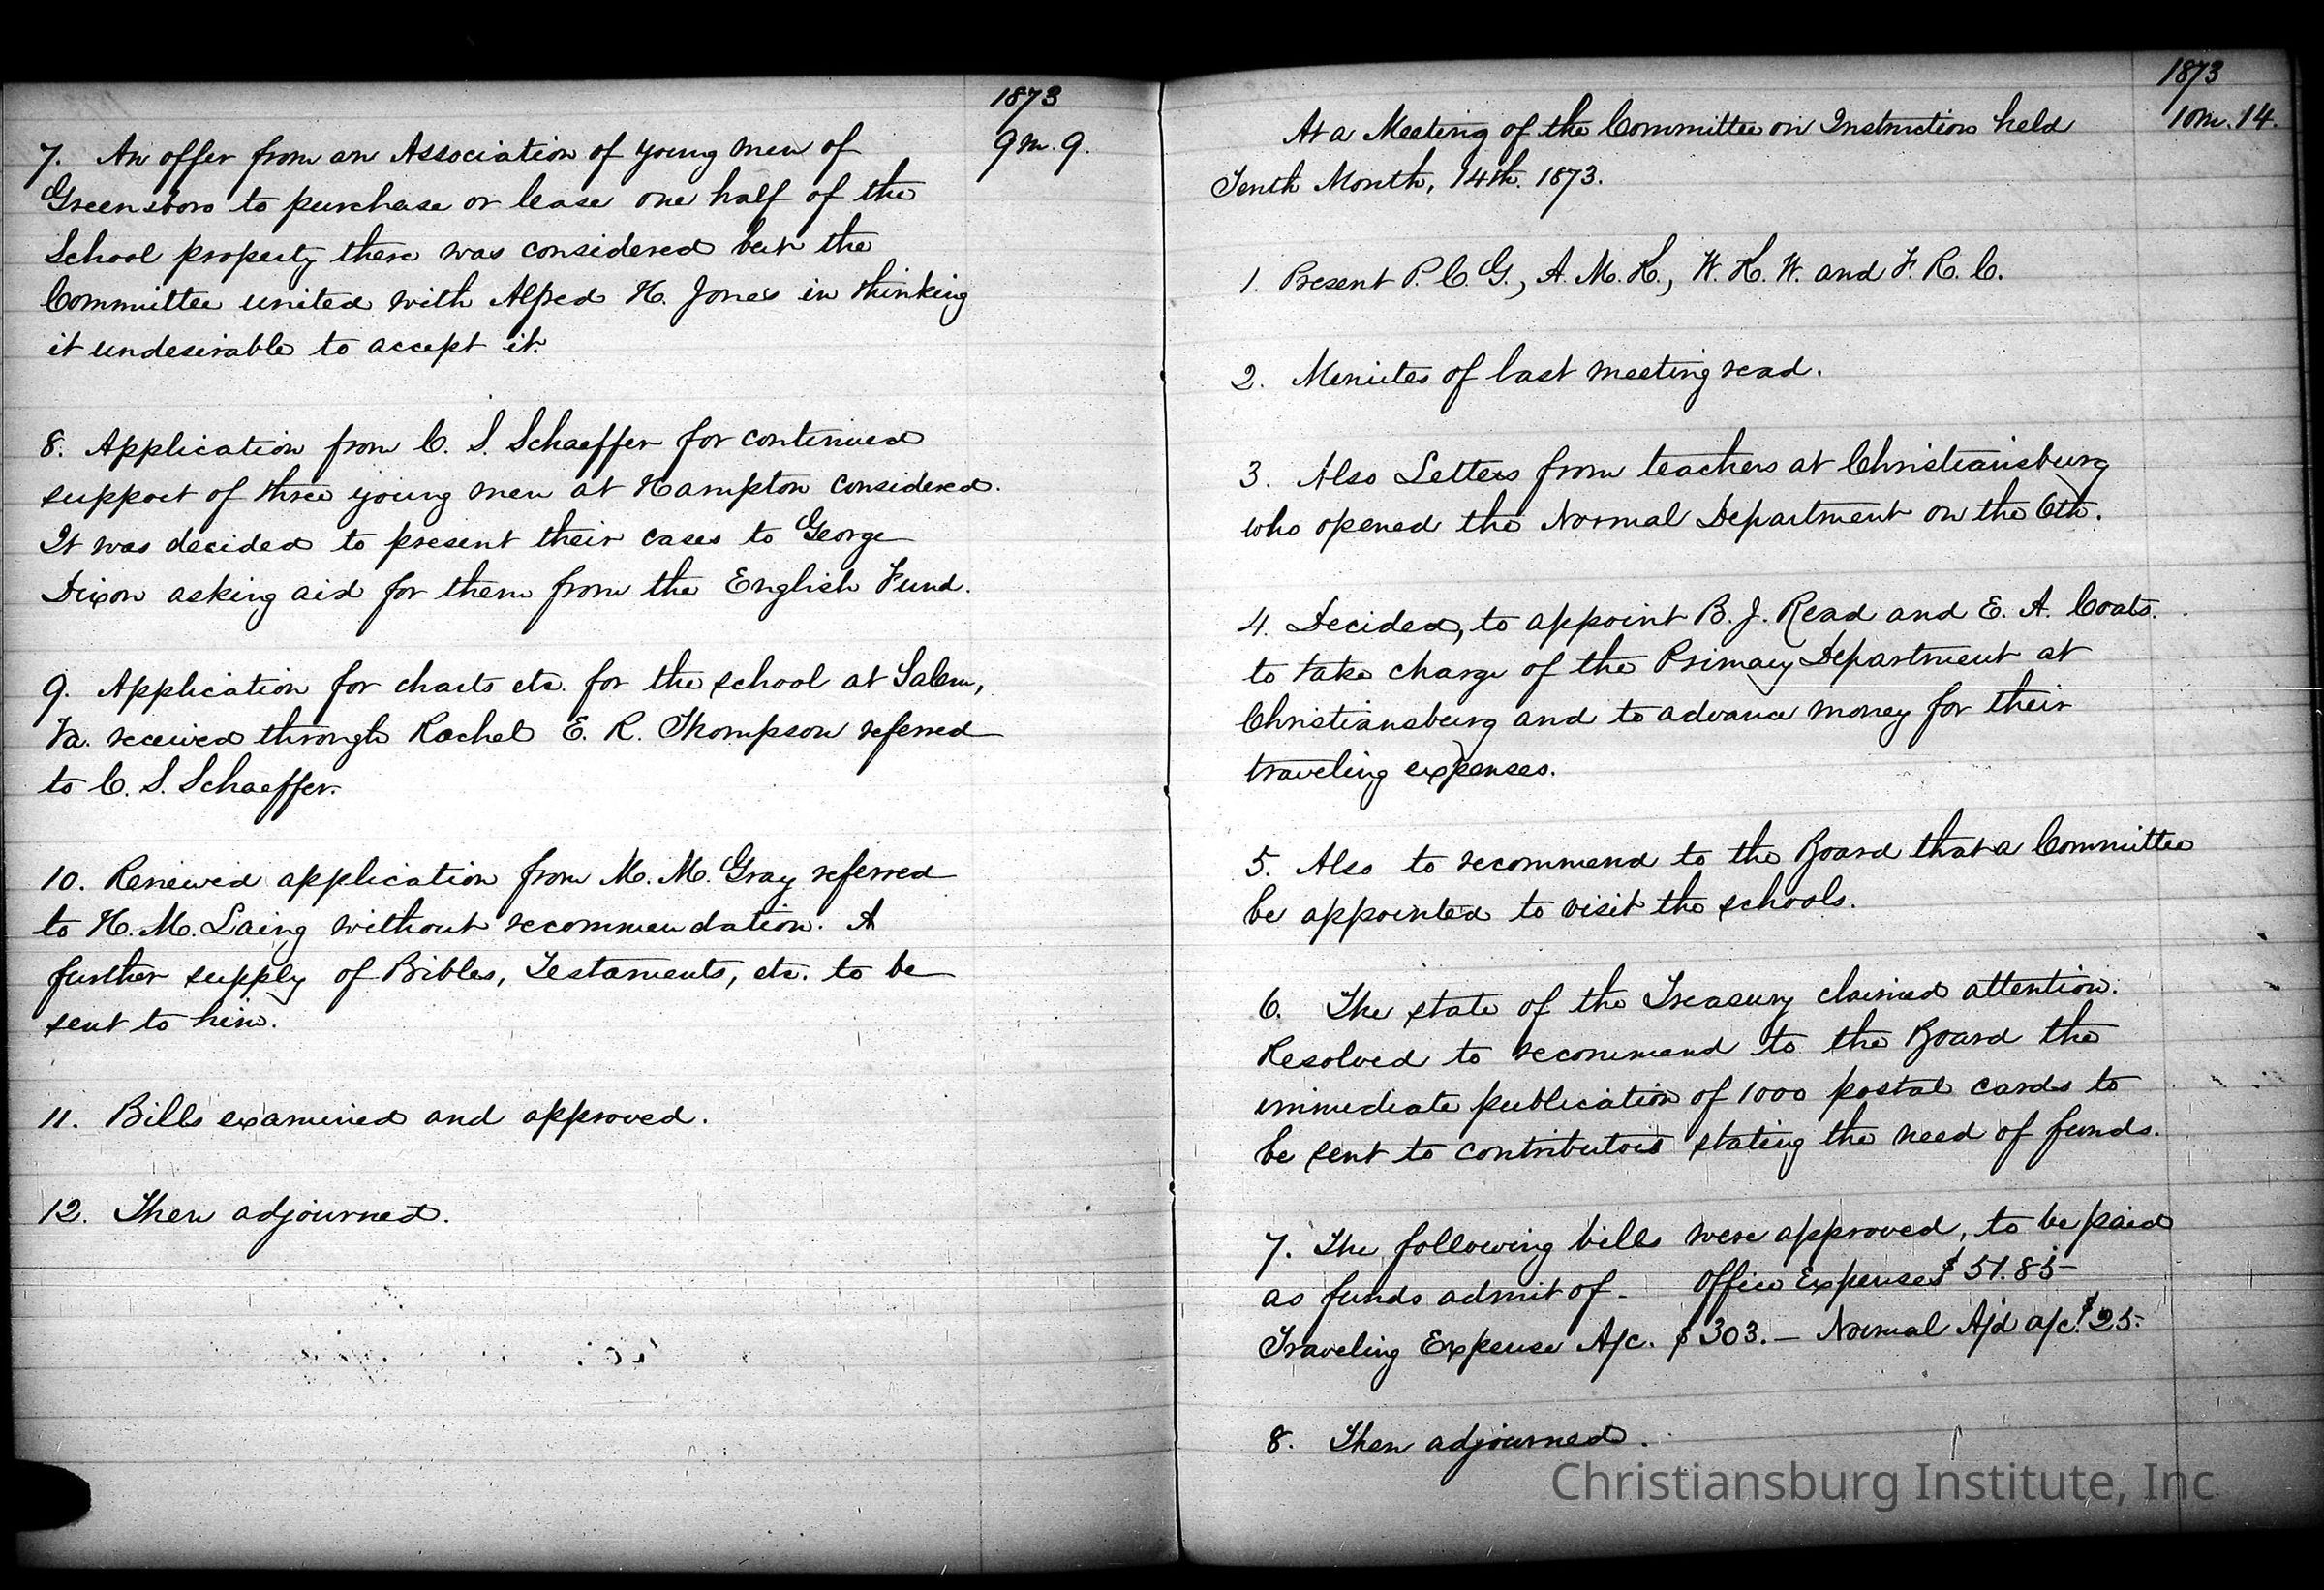 1873
9m. 9.
7. An offer from an Association of young men of
Greensboro to purchase or lease one half of the
School property there was considered but the
Committee united with Alfred H. Jones in thinking
it undesirable to accept it.
8. Application from C. S. Schaeffer for continued
support of three young men at Hampton considered.
It was decided to present their cases to George
Dixon asking aid for them from the English Fund.
9. Application for charts etc. for the school at Salem,
Va. received through Rachel E. R. Thompson referred
to C. S. Schaeffer.
10. Renewed application from M. M. Gray referred
to H. M. Laing without recommendation. A
further supply of Bibles, Testaments, etc. to be
sent to him.
11. Bills examined and approved.
12. Then adjourned.
1873
10m. 14.
At a Meeting of the Committee on Instruction held
Tenth Month, 14th. 1873.
1. Present P. C. G., A. M. K., W. K. W. and F. R. C.
2. Minutes of last meeting read.
3. Also Letters from teachers at Christiansburg
who opened the Normal Department on the 6th.
4. Decided, to appoint B. J. Read and E. A. Coats.
to take charge of the Primary Department at
Christiansburg and to advance money for their
traveling expenses.
5. Also to recommend to the Board that a Committee
be appointed to visit the schools.
6. The state of the Treasury claimed attention.
Resolved to recommend to the Board the
immediate publication of 1000 postal cards to
be sent to contributors stating the need of funds.
7. The following bills were approved, to be paid
as funds admit of - Office Expenses $51.85
Traveling Expense A/c. $303. — Normal A/d a/c. $25.
8. Then adjourned.
Christiansburg Institute, Inc